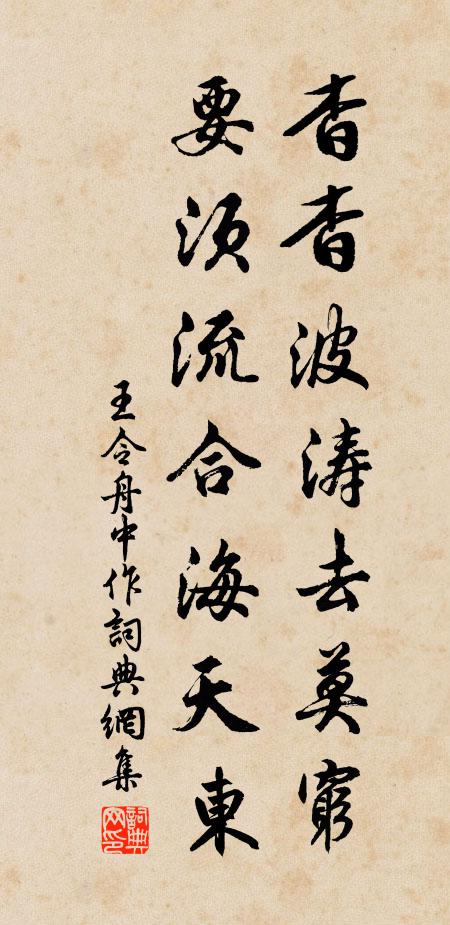 杳杳波涛去莫窮
要須流合海天東
王令舟中作詞典網集
詞典网印